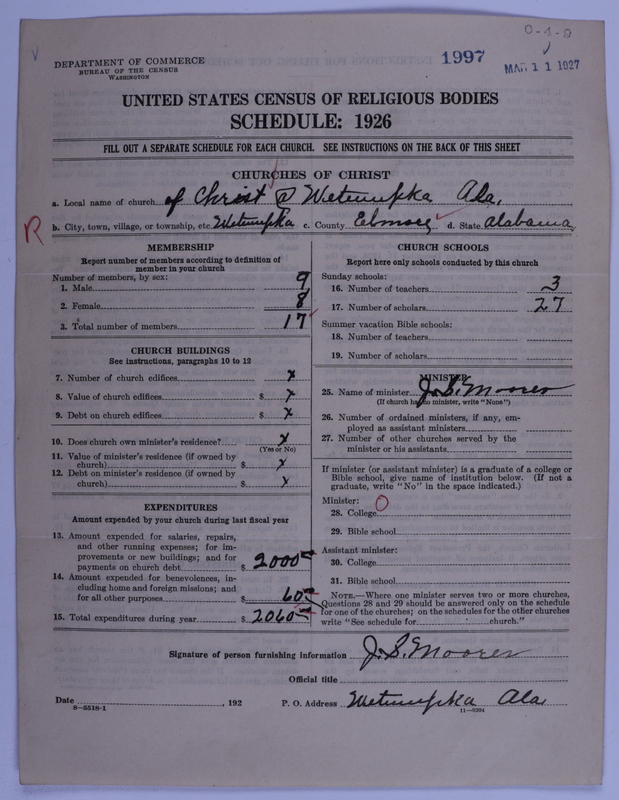 0-4-8
DEPARTMENT OF COMMERCE
BUREAU OF THE CENSUS
WASHINGTON
1997
MAR 11 1927
UNITED STATES CENSUS OF RELIGIOUS BODIES
SCHEDULE: 1926
FILL OUT A SEPARATE SCHEDULE FOR EACH CHURCH. SEE INSTRUCTIONS ON THE BACK OF THIS SHEET
CHURCHES OF CHRIST
a. Local name of church of Christ @ Wetumpka Ala.
R
b. City, town, village, or township, etc. Wetumpka c. County Elmore d. State Alabama
MEMBERSHIP
Report number of members according to definition of
member in your church
Number of members, by sex:
1. Male 9
2. Female 8
3. Total number of members 17
CHURCH BUILDINGS
See instructions, paragraphs 10 to 12
7. Number of church edifices x
8. Value of church edifices $ x
9. Debt on church edifices $ x
10. Does church own minister's residence? x
(Yes or No)
11. Value of minister's residence (if owned by
church) $ x
12. Debt on minister's residence (if owned by
church) $ x
EXPENDITURES
Amount expended by your church during last fiscal year
13. Amount expended for salaries, repairs,
and other running expenses; for im-
provements or new buildings; and for
payments on church debt $ 2000
14. Amount expended for benevolences, in-
cluding home and foreign missions; and
for all other purposes $ 60
15. Total expenditures during year $ 2060
CHURCH SCHOOLS
Report here only schools conducted by this church
Sunday schools:
16. Number of teachers 3
17. Number of scholars 27
Summer vacation Bible schools:
18. Number of teachers
19. Number of scholars
MINISTER
25. Name of minister J. S. Moores
(If church has no minister, write "None")
26. Number of ordained ministers, if any, em-
ployed as assistant ministers
27. Number of other churches served by the
minister or his assistants
If minister (or assistant minister) is a graduate of a college or
Bible school, give name of institution below. (If not a
graduate, write "No" in the space indicated.)
Minister:
28. College O
29. Bible school
Assistant minister:
30. College
31. Bible school
NOTE.—Where one minister serves two or more churches,
Questions 28 and 29 should be answered only on the schedule
for one of the churches; on the schedules for the other churches
write "See schedule for church."
Signature of person furnishing information J. S. Moores
Official title
Date , 192 P. O. Address Wetumpka Ala.
8—5518-1 11—9294